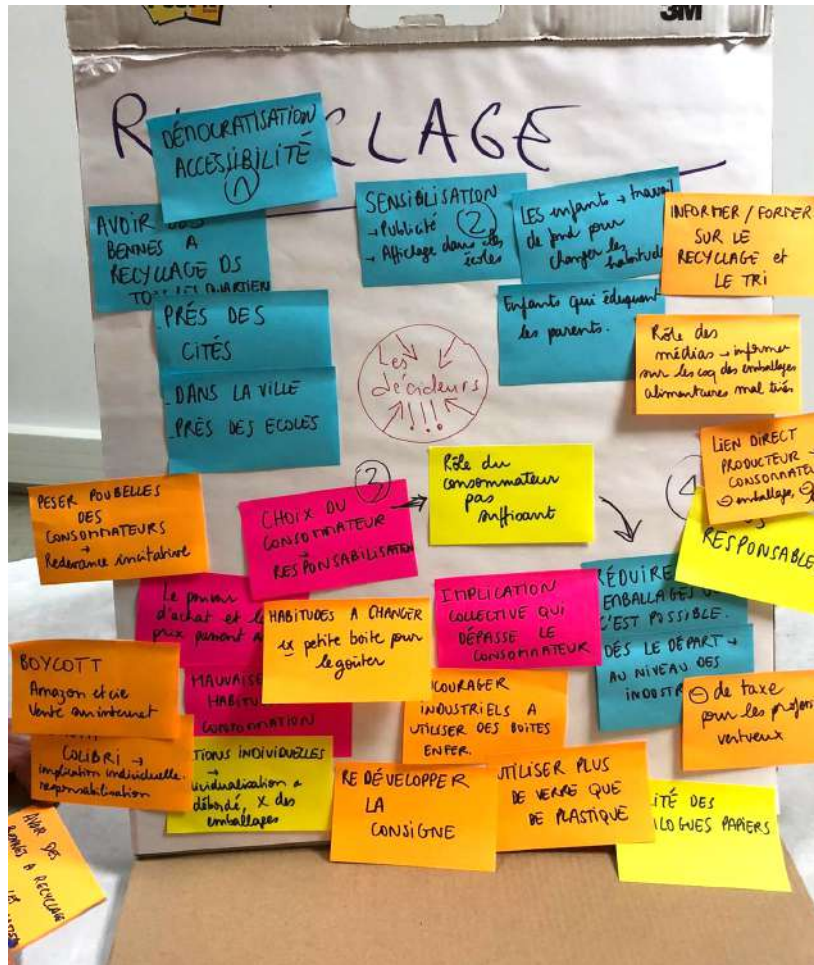 3M
R CLAGE
DÉMOCRATISATION
ACCESSIBILITÉ
1
AVOIR
BENNES A
RECYCLAGE DS
QUARTIER
PRÈS DES
CITÉS
-DANS LA VILLE
-PRÈS DES ECOLES
SENSIBLISATION
→ Publicité 2
→ Affichage dans les
écoles
LES enfants → travail
de fond pour
changer les
habitudes
Enfants qui éduquent
les parents.
INFORMER / FORMER
SUR LE
RECYCLAGE et
LE TRI
Rôle des
médias → informer
sur les coq des emballages
alimentaires mal triés
Les
décideurs
!!!
LIEN DIRECT
PRODUCTEUR
CONSOMMATEUR
⊖ emballage,
4
RESPONSABLE
PESER POUBELLES
DES
CONSOMMATEURS
→
Redevance incitative
3
CHOIX DU
CONSOMMATEUR
→
RESPONSABILISATION
Rôle du
consommateur
pas
suffisant
Le pouvoir
d'achat et le
prix
HABITUDES A CHANGER
ex petite boite pour
le goûter
IMPLICATION
COLLECTIVE QUI
DÉPASSE LE
CONSOMMATEUR
RÉDUIRE
EMBALLAGES
C'EST POSSIBLE.
DÉS LE DÉPART →
AU NIVEAU DES
INDUSTR
⊖ de taxe
pour les
vertueux
BOYCOTT
Amazon et cie
Vente sur internet
COLIBRI →
implication individuelle.
responsabilisation
MAUVAISE
HABITU
CONSOMMATION
TIONS INDIVIDUELLES
→
débordé, X des
emballages
COURAGER
INDUSTRIELS A
UTILISER DES BOITES
EN FER.
RE DÉVELOPPER
LA
CONSIGNE
UTILISER PLUS
DE VERRE QUE
DE PLASTIQUE
ITÉ DES
LOGUES PAPIERS
AVOIR DES
BENNES A RECYCLAGE